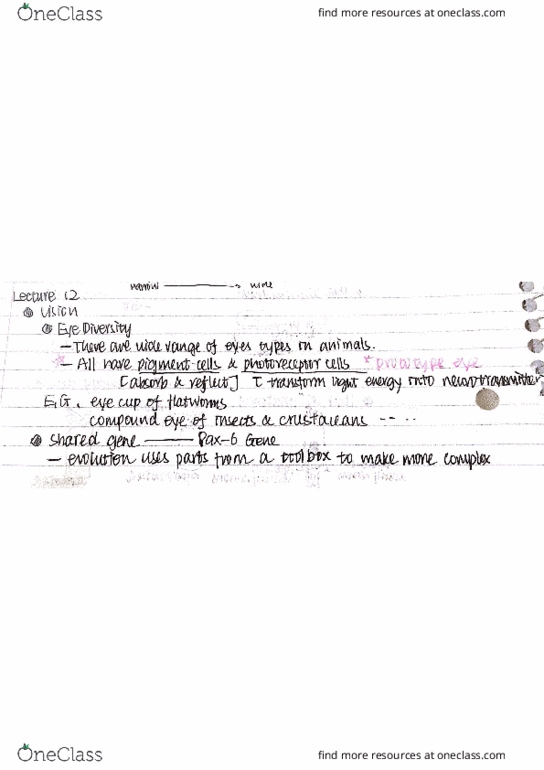 OneClass
find more resources at oneclass.com
narrow → wide
Lecture 12
Vision
Eye Diversity
- There are wide range of eyes types in animals.
* - All have pigment cells & photoreceptor cells * prototype eye
[absorb & reflect] transform light energy into neurotransmitter
E.G. eye cup of flatworms
compound eye of insects & crustaceans -- ..
Shared gene —— Pax-6 Gene
- evolution uses parts from a toolbox to make more complex
OneClass
find more resources at oneclass.com